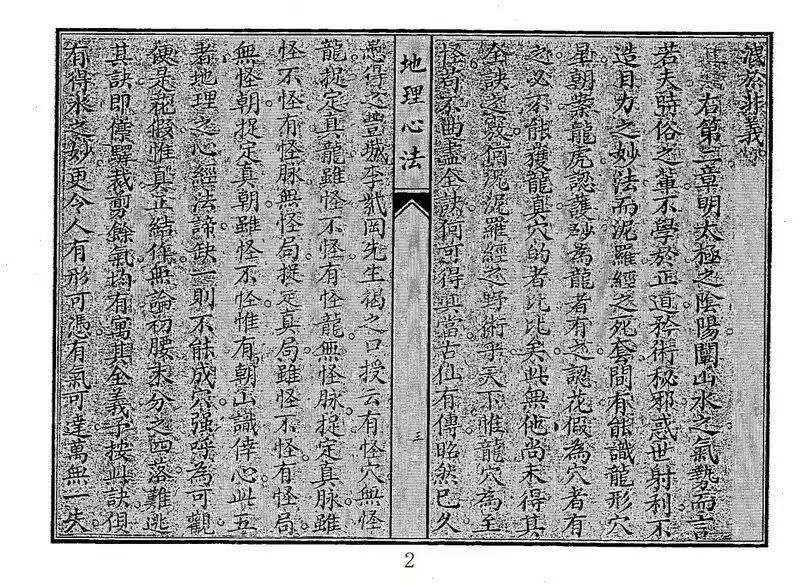 洩於非義
右第三章明太極之陰陽闡山水之氣勢而言
若夫時俗之輩不學於正道矜術秘邪惑世射利不
造目力之妙法而泥羅經之死套間有能識龍形穴
星朝案龍虎認護砂為龍者有之認花假為穴者有
之必不能獲龍真穴的者比比矣此無他尚未得其
全訣之致何況泥羅經之野術乎天下惟龍穴為至
怪苟不曲盡全訣何可得其當古仙有傳昭然已久
地理心法
三
愚得之豐城李岡先生之口授云有怪穴無怪
龍捉定真龍雖怪不怪有怪龍無怪脉捉定真脉雖
怪不怪有怪脉無怪局捉定真局雖怪不怪有怪局
無怪朝捉定真朝雖怪不怪惟有朝山識倖心此五
者地理之心經法諦缺一則不能成穴强呼為可觀
便是花假惟真正結作無論初腰末分之四落難逃
其訣即停驛裁剪餘氣均有寓其全義予按此訣俱
有得水之妙更令人有形可憑有氣可達萬無一失
2